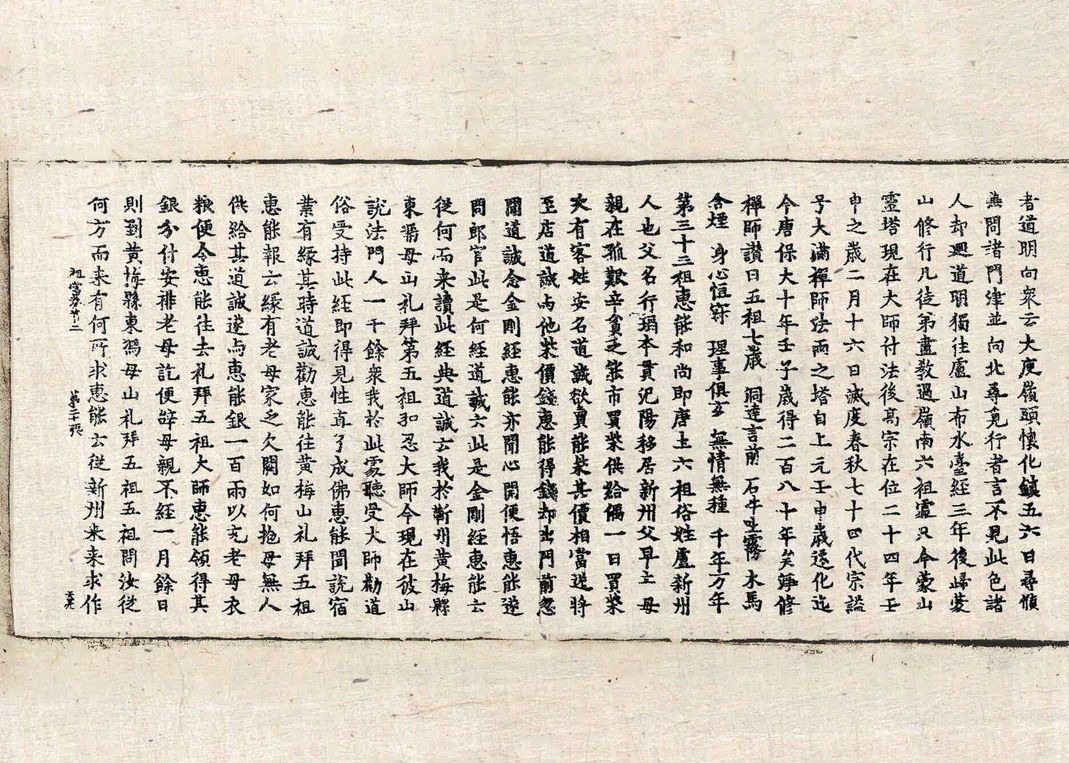 者道明向衆云大庾嶺頭懷化鎮五六日尋候
無問諸門津並向北尋覓行者言不見此色諸
人却迴道明獨往盧山布水臺經三年後歸蒙
山修行凡徒弟盡教過嶺南六祖處只今蒙山
靈塔現在大師付法後髙宗在位二十四年壬
申之歲二月十六日滅度春秋七十四代宗謚
号大滿禪師法雨之塔自上元壬申歲遷化迄
今唐保大十年壬子歲得二百八十年矣淨修
禪師讃曰五祖七歲 洞達言前 石牛吐霧 木馬
含煙 身心恒寂 理事俱玄 無情無種 千年万年
第三十三祖惠能和尚即唐土六祖俗姓盧新州
人也父名行瑫本貫范陽移居新州父早亡母
親在孤艱辛貧乏能市買柴供給偶一日買柴
次有客姓安名道誠欲買能柴其價相當送將
至店道誠与他柴價錢惠能得錢却出門前忽
聞道誠念金剛經惠能亦聞心開便悟惠能遂
問郎官此是何經道誠云此是金剛經惠能云
從何而来讀此經典道誠云我於蘄州黄梅縣
東馮母山礼拜第五祖弘忍大師今現在彼山
說法門人一千餘衆我於此處聽受大師勸道
俗受持此經即得見性直了成佛惠能聞說宿
業有緣其時道誠勸惠能往黄梅山礼拜五祖
惠能報云緣有老母家乏欠闕如何抛母無人
供給其道誠遂与惠能銀一百兩以充老母衣
粮便令惠能往去礼拜五祖大師惠能領得其
銀分付安排老母訖便辞母親不經一月餘日
則到黄梅縣東馮母山礼拜五祖五祖問汝從
何方而来有何所求惠能云從新州来来求作
祖堂卷第二 第二十張